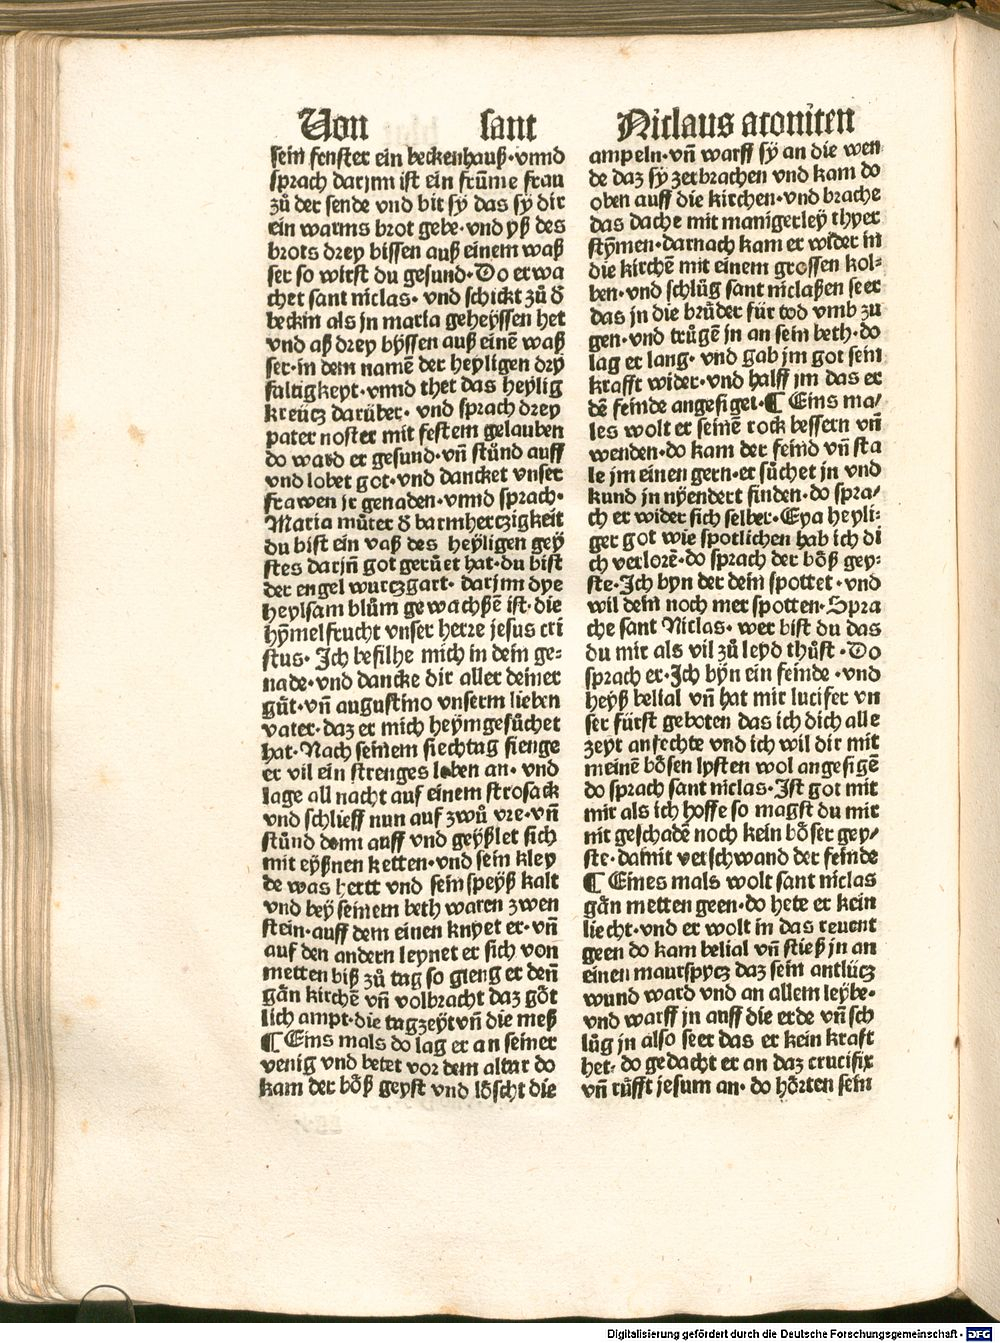 Von sant Niclaus aconiten
sein fenster ein beckenhauß·vnnd
sprach darjnn ist ein frūme frau
zů der sende vnd bit sÿ das sÿ dir
ein warms brot gebe·vnd yß des
brots drey bissen auß einem waß
ser so wirst du gesund·Do erwa
chet sant niclas·vnd schickt zů d̄
beckin als jn maria geheyssen het
vnd aß drey byssen auß einē waß
ser·in dem namē der heyligen dry
faltigkeyt·vnnd thet das heylig
kreücz darüber·vnd sprach drey
pater noster mit festem gelauben
do ward er gesund·vn̄ stůnd auff
vnd lobet got·vnd dancket vnser
frawen jr genaden·vnnd sprach·
Maria můter d̄ barmherczigkeit
du bist ein vaß des heÿligen geÿ
stes darjn̄ got gerůet hat·du bist
der engel wurczgart·darjnn dye
heylsam blům gewachßē ist·die
hÿmelfrucht vnser herre jesus cri
stus·Ich befilhe mich in dein ge⸗
nade·vnd dancke dir aller deiner
gůt·vn̄ augustino vnserm lieben
vater·daz er mich heymgesůchet
hat·Nach seinem siechtag fienge
er vil ein strenges leben an·vnd
lage all nacht auf einem strosack
vnd schlieff nun auf zwů vre·vn̄
stůnd denn auff vnd geÿßlet sich
mit eÿßnen ketten·vnd sein kley
de was hertt vnd sein speyß kalt
vnd beÿ seinem beth waren zwen
stein·auff dem einen knyet er·vn̄
auf den andern leynet er sich von
metten biß zů tag so gieng er den̄
gän kirchē vn̄ volbracht daz göt
lich ampt·die tagzeÿt vn̄ die meß
¶ Eins mals do lag er an seiner
venig vnd betet vor dem altar do
kam der böß geyst vnd löscht die
ampeln·vn̄ warff sÿ an die wen
de daz sÿ zerbrachen vnd kam do
oben auff die kirchen·vnd brache
das dache mit manigerleÿ thyer
stÿmen·darnach kam er wider in
die kirchē mit einem grossen kol⸗
ben·vnd schlůg sant niclaßen seer
das in die brůder für tod vmb zu
gen·vnd trůgē in an sein beth·do
lag er lang·vnd gab jm got sein
krafft wider·vnd halff jm das er
dē feinde angesigel·¶ Eins ma/
les wolt er seinē rock bessern vn̄
wenden·do kam der feind vn̄ sta
le jm einen gern·er sůchet jn vnd
kund jn nÿendert finden·do spra/
ch er wider sich selber·Eya heyli⸗
ger got wie spotlichen hab ich di
ch verlorē·do sprach der böß gey⸗
ste·Ich byn der dein spottet·vnd
wil dein noch mer spotten·Spra
che sant Niclas·wer bist du das
du mir als vil zů leyd thůst·Do
sprach er·Ich bÿn ein feinde·vnd
heyß belial vn̄ hat mir lucifer vn
ser fürst geboten das ich dich alle
zeyt anfechte vnd ich wil dir mit
meinē bösen lysten wol angesigē
do sprach sant niclas·Ist got mit
mir als ich hoffe so magst du mir
nit geschadē noch kein böser gey/
ste·damit verschwand der feinde
¶ Eines mals wolt sant niclas
gān metten geen·do hete er kein
liecht·vnd er wolt in das reuent
geen do kam belial vn̄ stieß jn an
einen maurspycz daz sein antlücz
wund ward vnd an allem leÿbe·
vnd warff jn auff die erde vn̄ sch
lůg jn also seer das er kein kraft
het·do gedacht er an daz crucifix
vn̄ růfft jesum an·do hörten sein
Digitalisierung gefördert durch die Deutsche Forschungsgemeinschaft - DFG